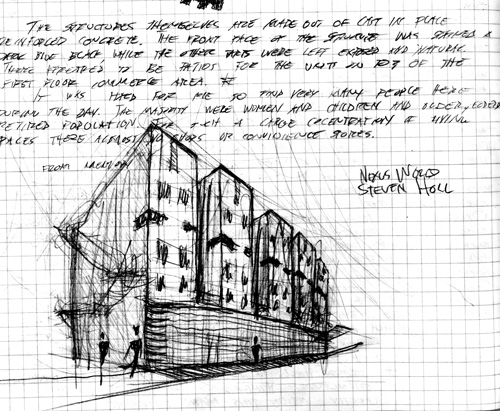 THE STRUCTURES THEMSELVES ARE MADE OUT OF CAST IN PLACE
REINFORCED CONCRETE. THE FRONT FACE OF THE STRUCTURE WAS STAINED A
DARK BLUE BLACK, WHILE THE OTHER PARTS WERE LEFT EXPOSED AND NATURAL.
THERE APPEARED TO BE PATIOS FOR THE UNIT ON TOP OF THE
FIRST FLOOR COMMERCE AREA.
IT WAS HARD FOR ME TO FIND VERY MANY PEOPLE HERE
DURING THE DAY. THE MAJORITY WERE WOMEN AND CHILDREN AND ELDERLY,
RETIRED POPULATION. FOR SUCH A LARGE CONCENTRATION OF LIVING
SPACES THERE ALMOST NO SHOPS OR CONVIDIENCE STORES.
FROM
NEXUS WORLD
STEVEN HOLL